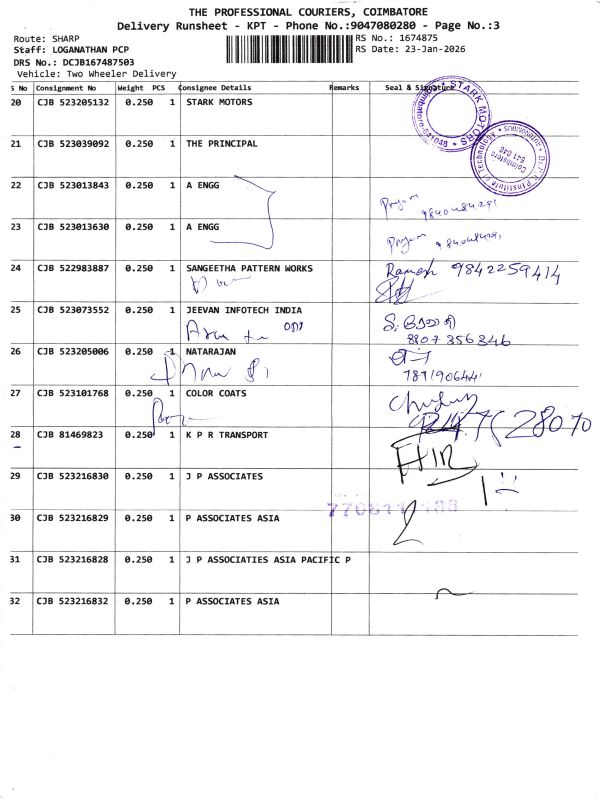 THE PROFESSIONAL COURIERS, COIMBATORE
Delivery Runsheet - KPT - Phone No.:9047080280 - Page No.:3
Route: SHARP
RS No.: 1674875
Staff: LOGANATHAN PCP
RS Date: 23-Jan-2026
DRS No.: DCJB167487503
Vehicle: Two Wheeler Delivery
S No Consignment No Weight PCS Consignee Details Remarks Seal & Signature
20 CJB 523205132 0.250 1 STARK MOTORS
STARK MOTORS
Coimbatore-641048
21 CJB 523039092 0.250 1 THE PRINCIPAL
Institute of Technology
Coimbatore
641 048
22 CJB 523013843 0.250 1 A ENGG
23 CJB 523013630 0.250 1 A ENGG
24 CJB 522983887 0.250 1 SANGEETHA PATTERN WORKS
Ramesh 9842259414
25 CJB 523073552 0.250 1 JEEVAN INFOTECH INDIA
8807356346
26 CJB 523205006 0.250 1 NATARAJAN
27 CJB 523101768 0.250 1 COLOR COATS
28 CJB 81469823 0.250 1 K P R TRANSPORT
29 CJB 523216830 0.250 1 J P ASSOCIATES
30 CJB 523216829 0.250 1 P ASSOCIATES ASIA
31 CJB 523216828 0.250 1 J P ASSOCIATIES ASIA PACIFIC P
32 CJB 523216832 0.250 1 P ASSOCIATES ASIA